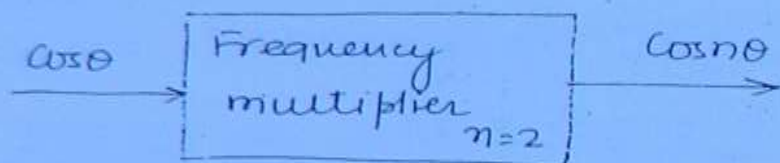 cosθ
Frequency
multiplier
n=2
Cosnθ